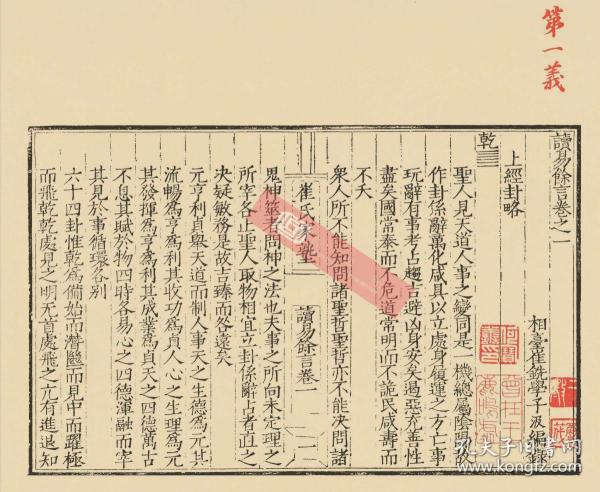 第一義
讀易餘言卷之一
相臺崔銑學子汲編錄
上經卦略
乾
聖人見天道人事之變同是一機總屬陰陽故
作卦係辭萬化咸具以立處身領運之方亡事
玩辭有事考占趨吉避凶身安矣遏惡充善性
盡矣國常泰而不危道常明而不詭民咸壽而
不夭
衆人所不能知問諸聖哲聖哲亦不能決問諸
崔氏家塾
讀易餘言卷一
鬼神筮者問神之法也夫事之所向未定理之
所宰各止聖人取物相宜立卦係辭占者直之
決疑敏務是故吉臻而咎遠矣
元亨利貞舉天道而制人事天之生德為元其
流暢為亨為利其收功為貞人心之生理為元
其發揮為亨為利其成業為貞天之四德萬古
不息其賦於物四時各易心之四德渾融而宰
其見於事循環各別
六十四卦惟乾為備始而潛繼而見中而躍極
而飛乾乾處見之明无首處飛之亢有進退知
孔夫子旧书网
www.kongfz.com